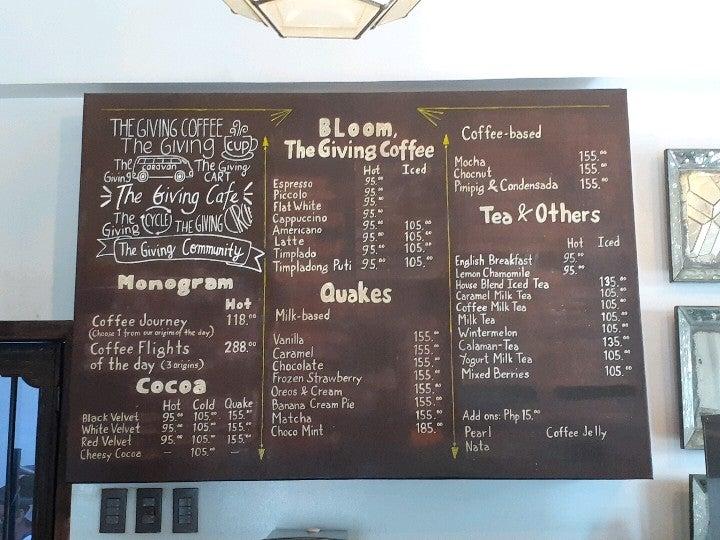 THE GIVING COFFEE
The GIVING CUP
The Giving caravan The Giving CART
The Giving Cafe
The Giving CYCLE THE GIVING CIRCLE
The Giving Community
Monogram
Hot
Coffee Journey 118.00
(Choose 1 from our origins of the day)
Coffee Flights 288.00
of the day (3 origins)
Cocoa
Hot Cold Quake
Black Velvet 95.00 105.00 155.00
White Velvet 95.00 105.00 155.00
Red Velvet 95.00 105.00 155.00
Cheesy Cocoa — 105.00 —
BLoom,
The Giving Coffee
Hot Iced
Espresso 95.00
Piccolo 95.00
Flat White 95.00
Cappuccino 95.00
Americano 95.00 105.00
Latte 95.00 105.00
Timplado 95.00 105.00
Timpladong Puti 95.00 105.00
Quakes
Milk-based
Vanilla 155.00
Caramel 155.00
Chocolate 155.00
Frozen Strawberry 155.00
Oreos & Cream 155.00
Banana Cream Pie 155.00
Matcha 155.00
Choco Mint 185.00
Coffee-based
Mocha 155.00
Chocnut 155.00
Pinipig & Condensada 155.00
Tea & Others
Hot Iced
English Breakfast 95.00
Lemon Chamomile 95.00
House Blend Iced Tea 135.00
Caramel Milk Tea 105.00
Coffee Milk Tea 105.00
Milk Tea 105.00
Wintermelon 105.00
Calaman-Tea 135.00
Yogurt Milk Tea 105.00
Mixed Berries 105.00
Add ons: Php 15.00
Pearl Coffee Jelly
Nata